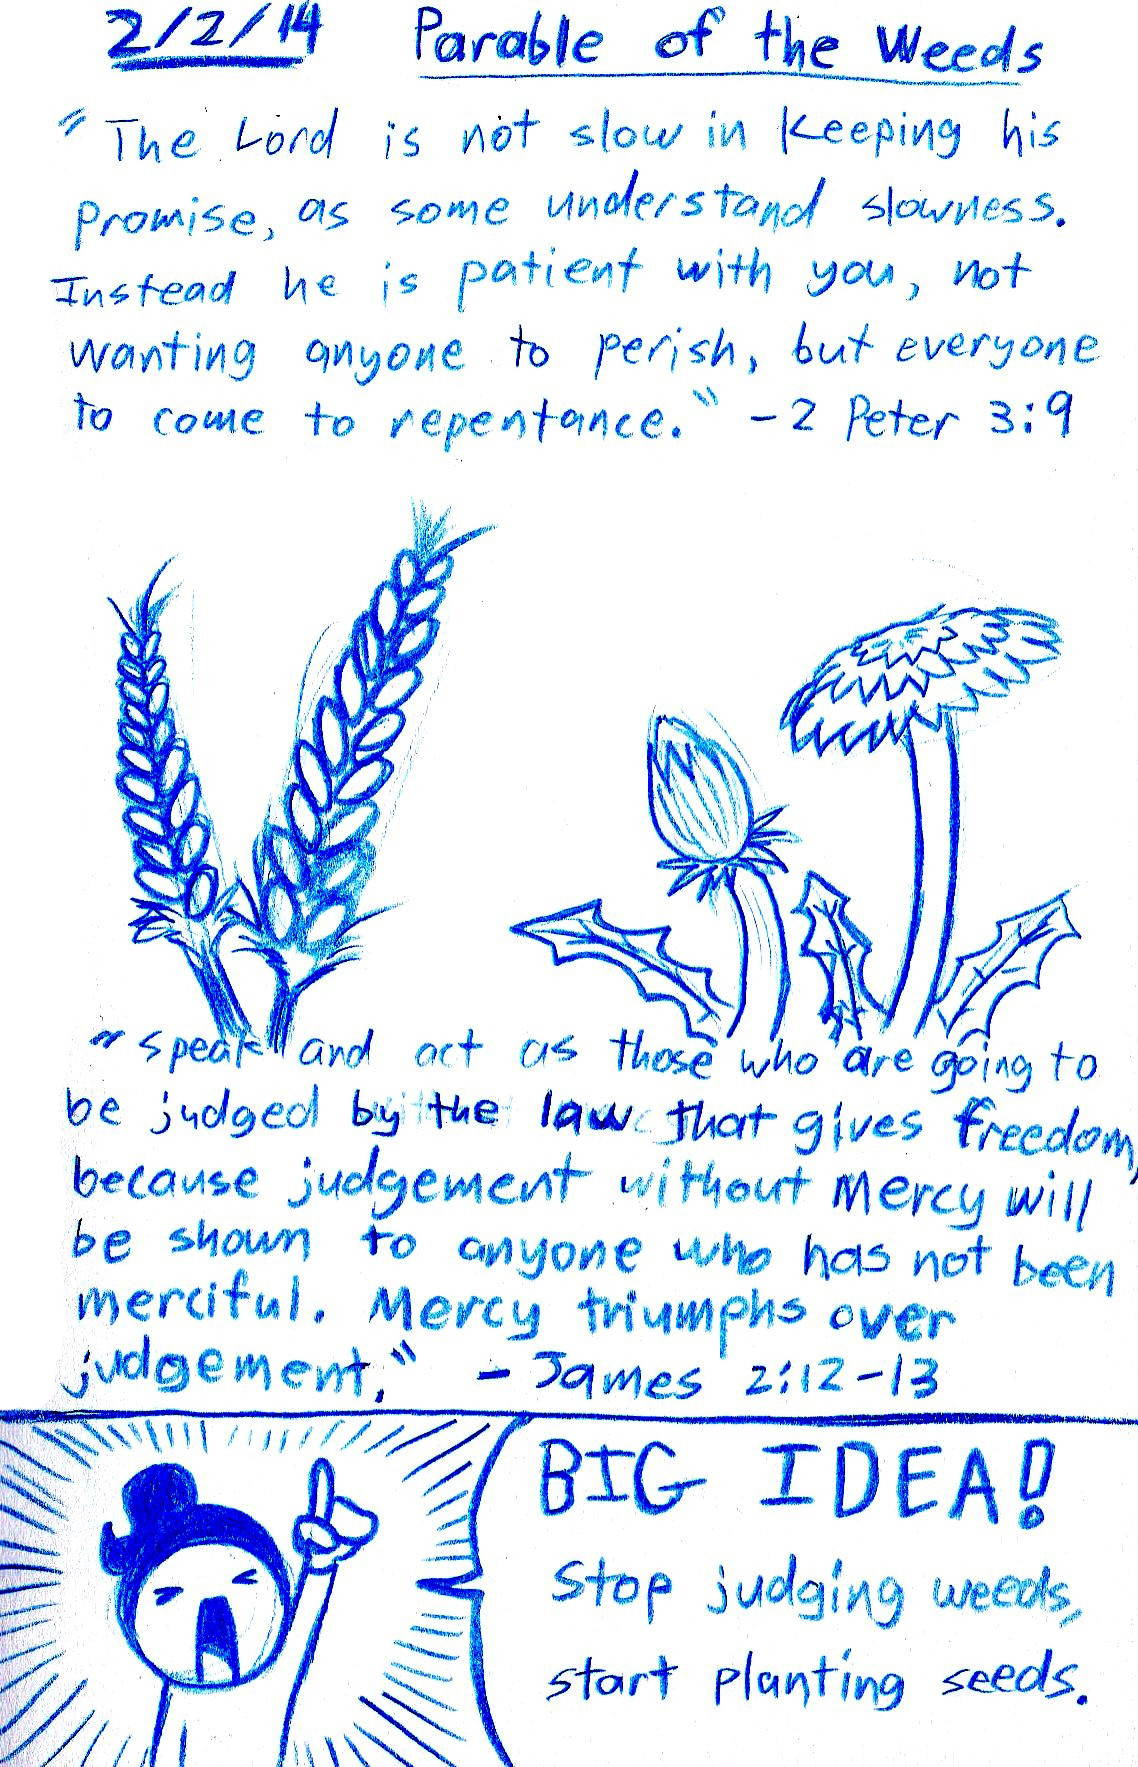 2/2/14 Parable of the Weeds
"The Lord is not slow in keeping his
promise, as some understand slowness.
Instead he is patient with you, not
wanting anyone to perish, but everyone
to come to repentance." - 2 Peter 3:9
"Speak and act as those who are going to
be judged by the law that gives freedom,
because judgement without mercy will
be shown to anyone who has not been
merciful. Mercy triumphs over
judgement." - James 2:12-13
BIG IDEA!
Stop judging weeds,
start planting seeds.